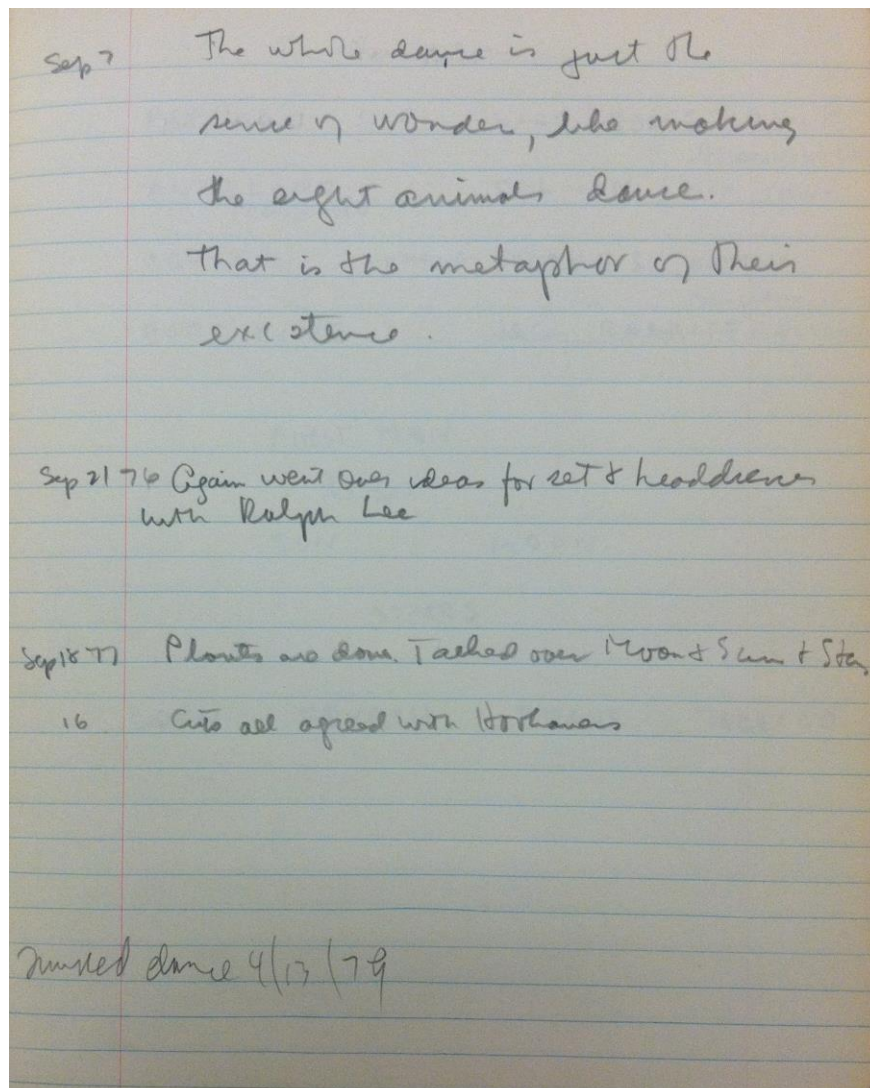 Sep 7 The whole dance is just the
sense of wonder, like making
the eight animals dance.
That is the metaphor of their
existence.
Sep 21 76 Again went over ideas for set & headdresses
with Ralph Lee
Sep 18 77 Plants are done. Talked over Moon & Sun & Star
16 Cuts all agreed with Hovhaness
dance 4/13/79